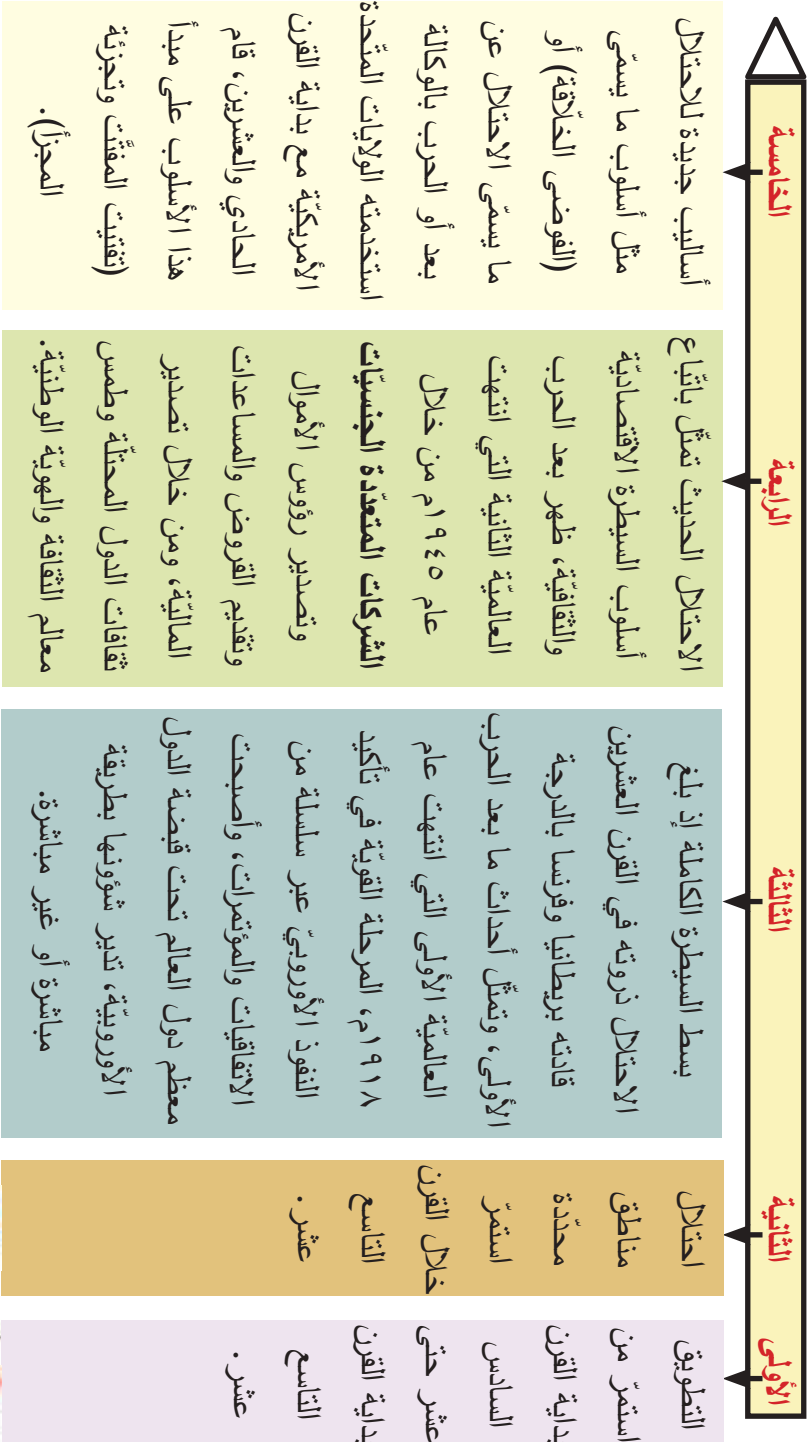 الأولى
التطويق
استمرّ من
بداية القرن
السادس
عشر حتى
بداية القرن
التاسع
عشر .
الثانية
احتلال
مناطق
محدّدة
استمرّ
خلال القرن
التاسع
عشر .
الثالثة
بسط السيطرة الكاملة إذ بلغ
الاحتلال ذروته في القرن العشرين
قادته بريطانيا وفرنسا بالدرجة
الأولى، وتمثّل أحداث ما بعد الحرب
العالميّة الأولى التي انتهت عام
١٩١٨م، المرحلة القويّة في تأكيد
النفوذ الأوروبيّ عبر سلسلة من
الاتفاقيات والمؤتمرات، وأصبحت
معظم دول العالم تحت قبضة الدول
الأوروبيّة، تدير شؤونها بطريقة
مباشرة أو غير مباشرة.
الرابعة
الاحتلال الحديث تمثّل باتّباع
أسلوب السيطرة الاقتصاديّة
والثقافيّة، ظهر بعد الحرب
العالميّة الثانية التي انتهت
عام ١٩٤٥م من خلال
الشركات المتعدّدة الجنسيّات
وتصدير رؤوس الأموال
وتقديم القروض والمساعدات
الماليّة، ومن خلال تصدير
ثقافات الدول المحتلّة وطمس
معالم الثقافة والهويّة الوطنيّة.
الخامسة
أساليب جديدة للاحتلال
مثل أسلوب ما يسمّى
(الفوضى الخلّاقة) أو
ما يسمّى الاحتلال عن
بعد أو الحرب بالوكالة
استخدمته الولايات المتّحدة
الأمريكيّة مع بداية القرن
الحادي والعشرين، قام
هذا الأسلوب على مبدأ
(تفتيت المفتّت وتجزئة
المجزأ).